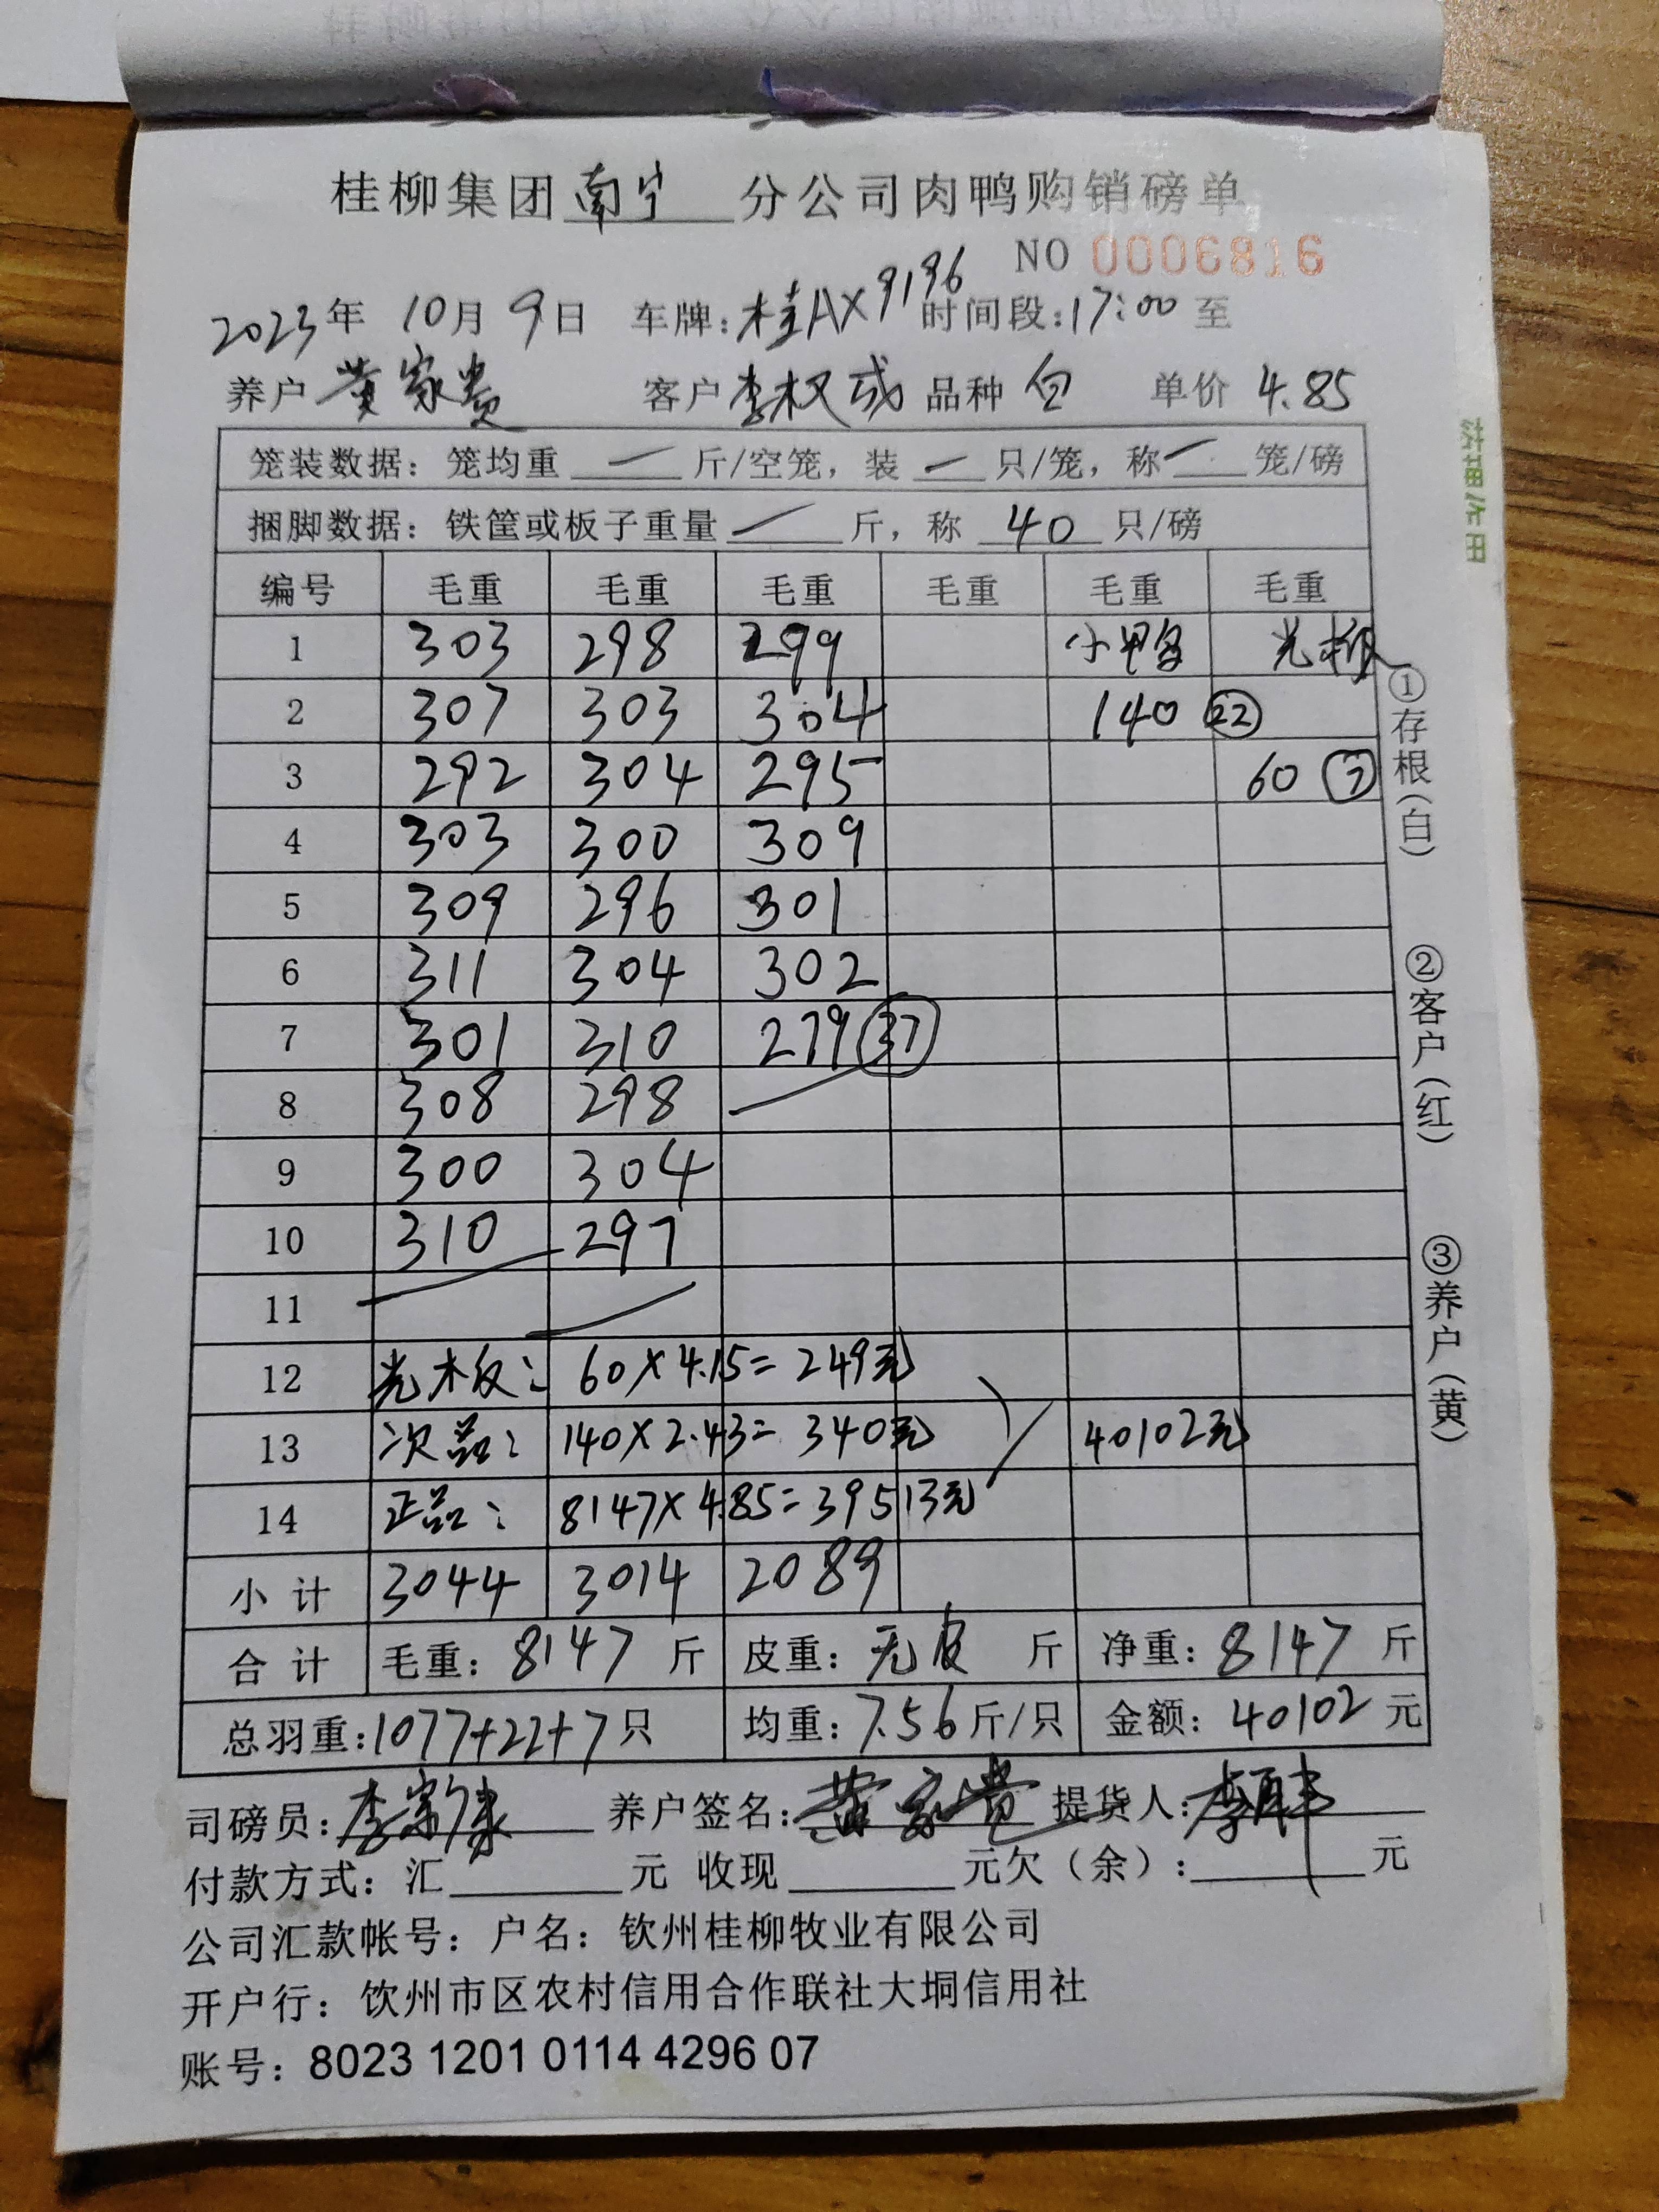 桂柳集团南宁分公司肉鸭购销磅单
NO 0006816
2023年 10月 9日 车牌:桂AX9196 时间段:17:00 至
养户 黄家贵 客户 李权 品种 白 单价 4.85
笼装数据：笼均重 — 斤/空笼，装 — 只/笼，称 — 笼/磅
捆脚数据：铁筐或板子重量 — 斤，称 40 只/磅
编号 毛重 毛重 毛重 毛重 毛重 毛重
1 303 298 299 小鸭 光板
2 307 303 304 140 22
3 292 304 295 60 7
4 303 300 309
5 309 296 301
6 311 304 302
7 301 310 279 37
8 308 298
9 300 304
10 310 297
11
12 光木板： 60×4.15=249元
13 次品： 140×2.43=340元 40102元
14 正品： 8147×4.85=39513元
小计 3044 3014 2089
合计 毛重：8147 斤 皮重：无皮 斤 净重：8147 斤
总羽重:1077+22+7只 均重:7.56斤/只 金额：40102元
司磅员:李 养户签名:黄家贵 提货人:李
付款方式：汇 元 收现 元欠（余）: 元
公司汇款帐号：户名：钦州桂柳牧业有限公司
开户行：饮州市区农村信用合作联社大垌信用社
账号：8023 1201 0114 4296 07
①存根(白)
②客户(红)
③养户(黄)